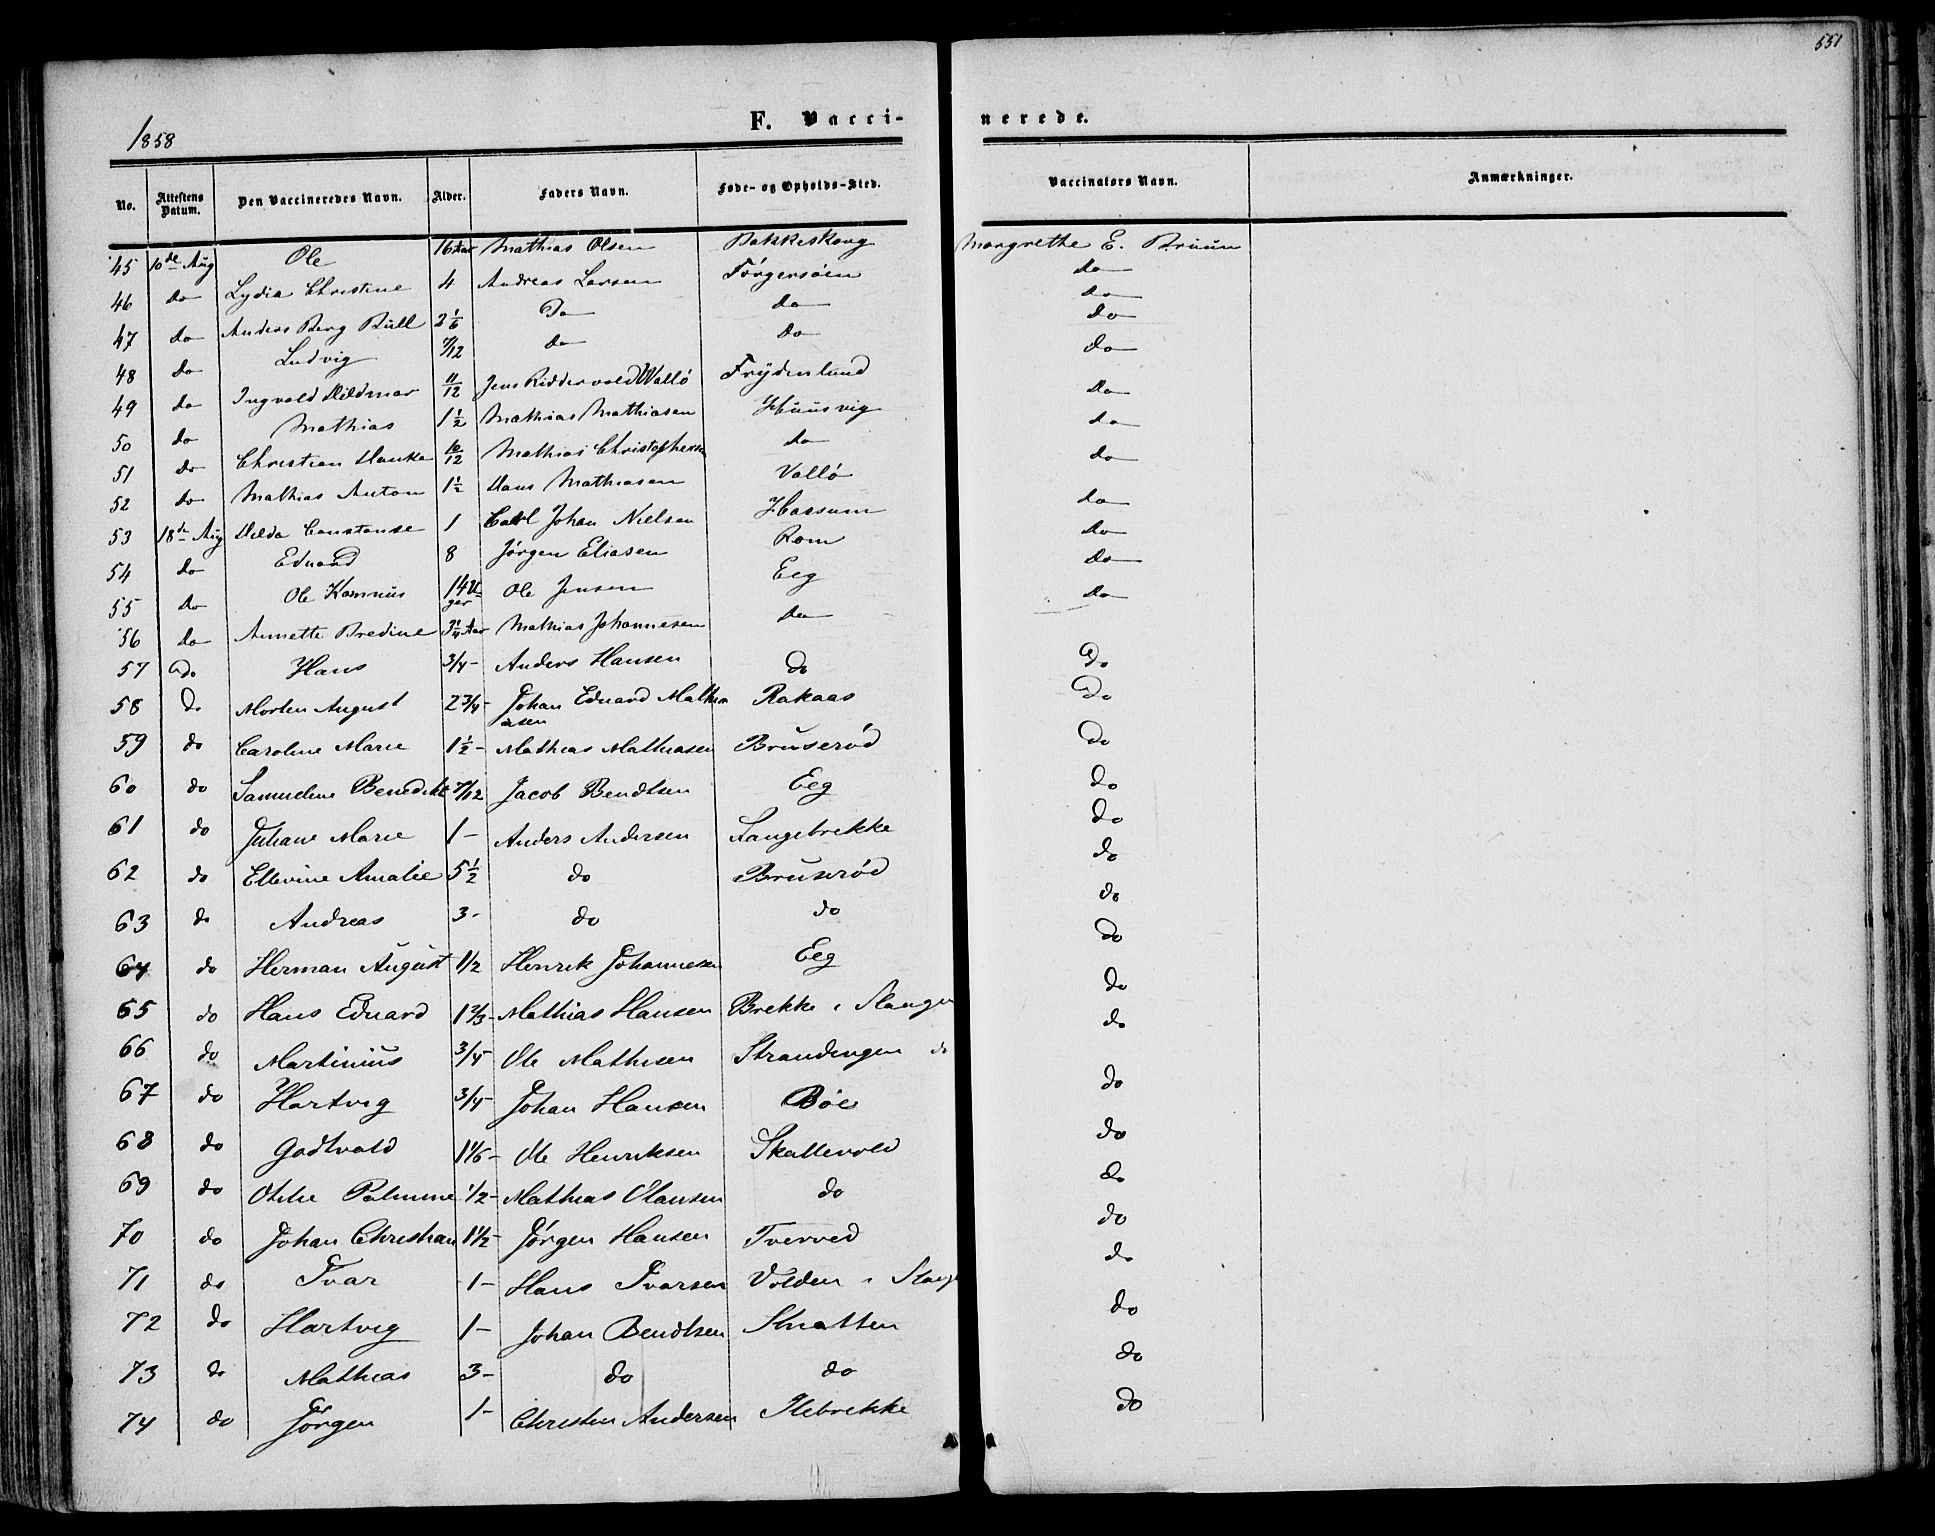 551
1858
F. Vacci-nerede.
No. Attestens Datum. Den Vaccineredes Navn. Alder. Faders Navn. Føde- og Opholds-Sted. Vaccinatørs Navn. Anmærkninger.
45 10de Aug Ole 16 Aar Mathias Olsen Bakkeskoug Margrethe E. Bruun
46 do Lydia Christine 4 Andreas Larsen Førgersøen do
47 do Anders Berg Bull 2 1/6 Do do do
48 do Ludvig 7/12 do do do
49 do Ingvald Hildmar 11/12 Jens Riddervold Wallö Frydenlund do
50 do Mathias 1 1/2 Mathias Mathiasen Huusvig do
51 do Christian Hanke 10/12 Mathias Christophersen do do
52 do Mathias Anton 1 1/2 Hans Mathiasen Vallö do
53 18de Aug Hilda Constanse 1 Carl Johan Nielsen Hassum do
54 do Eduard 8 Jørgen Eliasen Rom do
55 do Ole 14 Uger Ole Jensen Eeg do
56 do Annette Bredine 3 1/4 Aar Mathias Johannesen do do
57 Do Hans 3/4- Anders Hansen do Do
58 Do Morten August 2 3/4- Johan Eduard Mathiasen Rakaas Do
59 do Caroline Marie 1 1/2- Mathias Mathiasen Bruserød Do
60 do Samueline Benedikte 7/12 Jacob Bendtsen Eeg do
61 do Juliane Marie 1- Anders Andersen Langebrekke do
62 do Ellevine Amalie 5 1/2 do Bruserød do
63 do Andreas 3- do do do
64 do Herman August 1/2 Henrik Johannesen Eeg Do
65 do Hans Eduard 1 2/3- Mathias Hansen Brekke i Slagen do
66 do Martinius 3/4- Ole Mathisen Strandengen do do
67 do Hartvig 3/4- Johan Hansen Bøe do
68 do Godtvald 1 1/6- Ole Henriksen Skallevold do
69 do Othe Palmine 1/2- Mathias Olausen do do
70 do Johan Christian 1 1/2- Jørgen Hansen Tverved do
71 do Ivar 1- Hans Ivarsen Volden i Slag do
72 do Hartvig 1- Johan Bendtsen Knatten do
73 do Mathias 3- do do do
74 do Jørgen 1- Christen Andersen Ilebrekke do